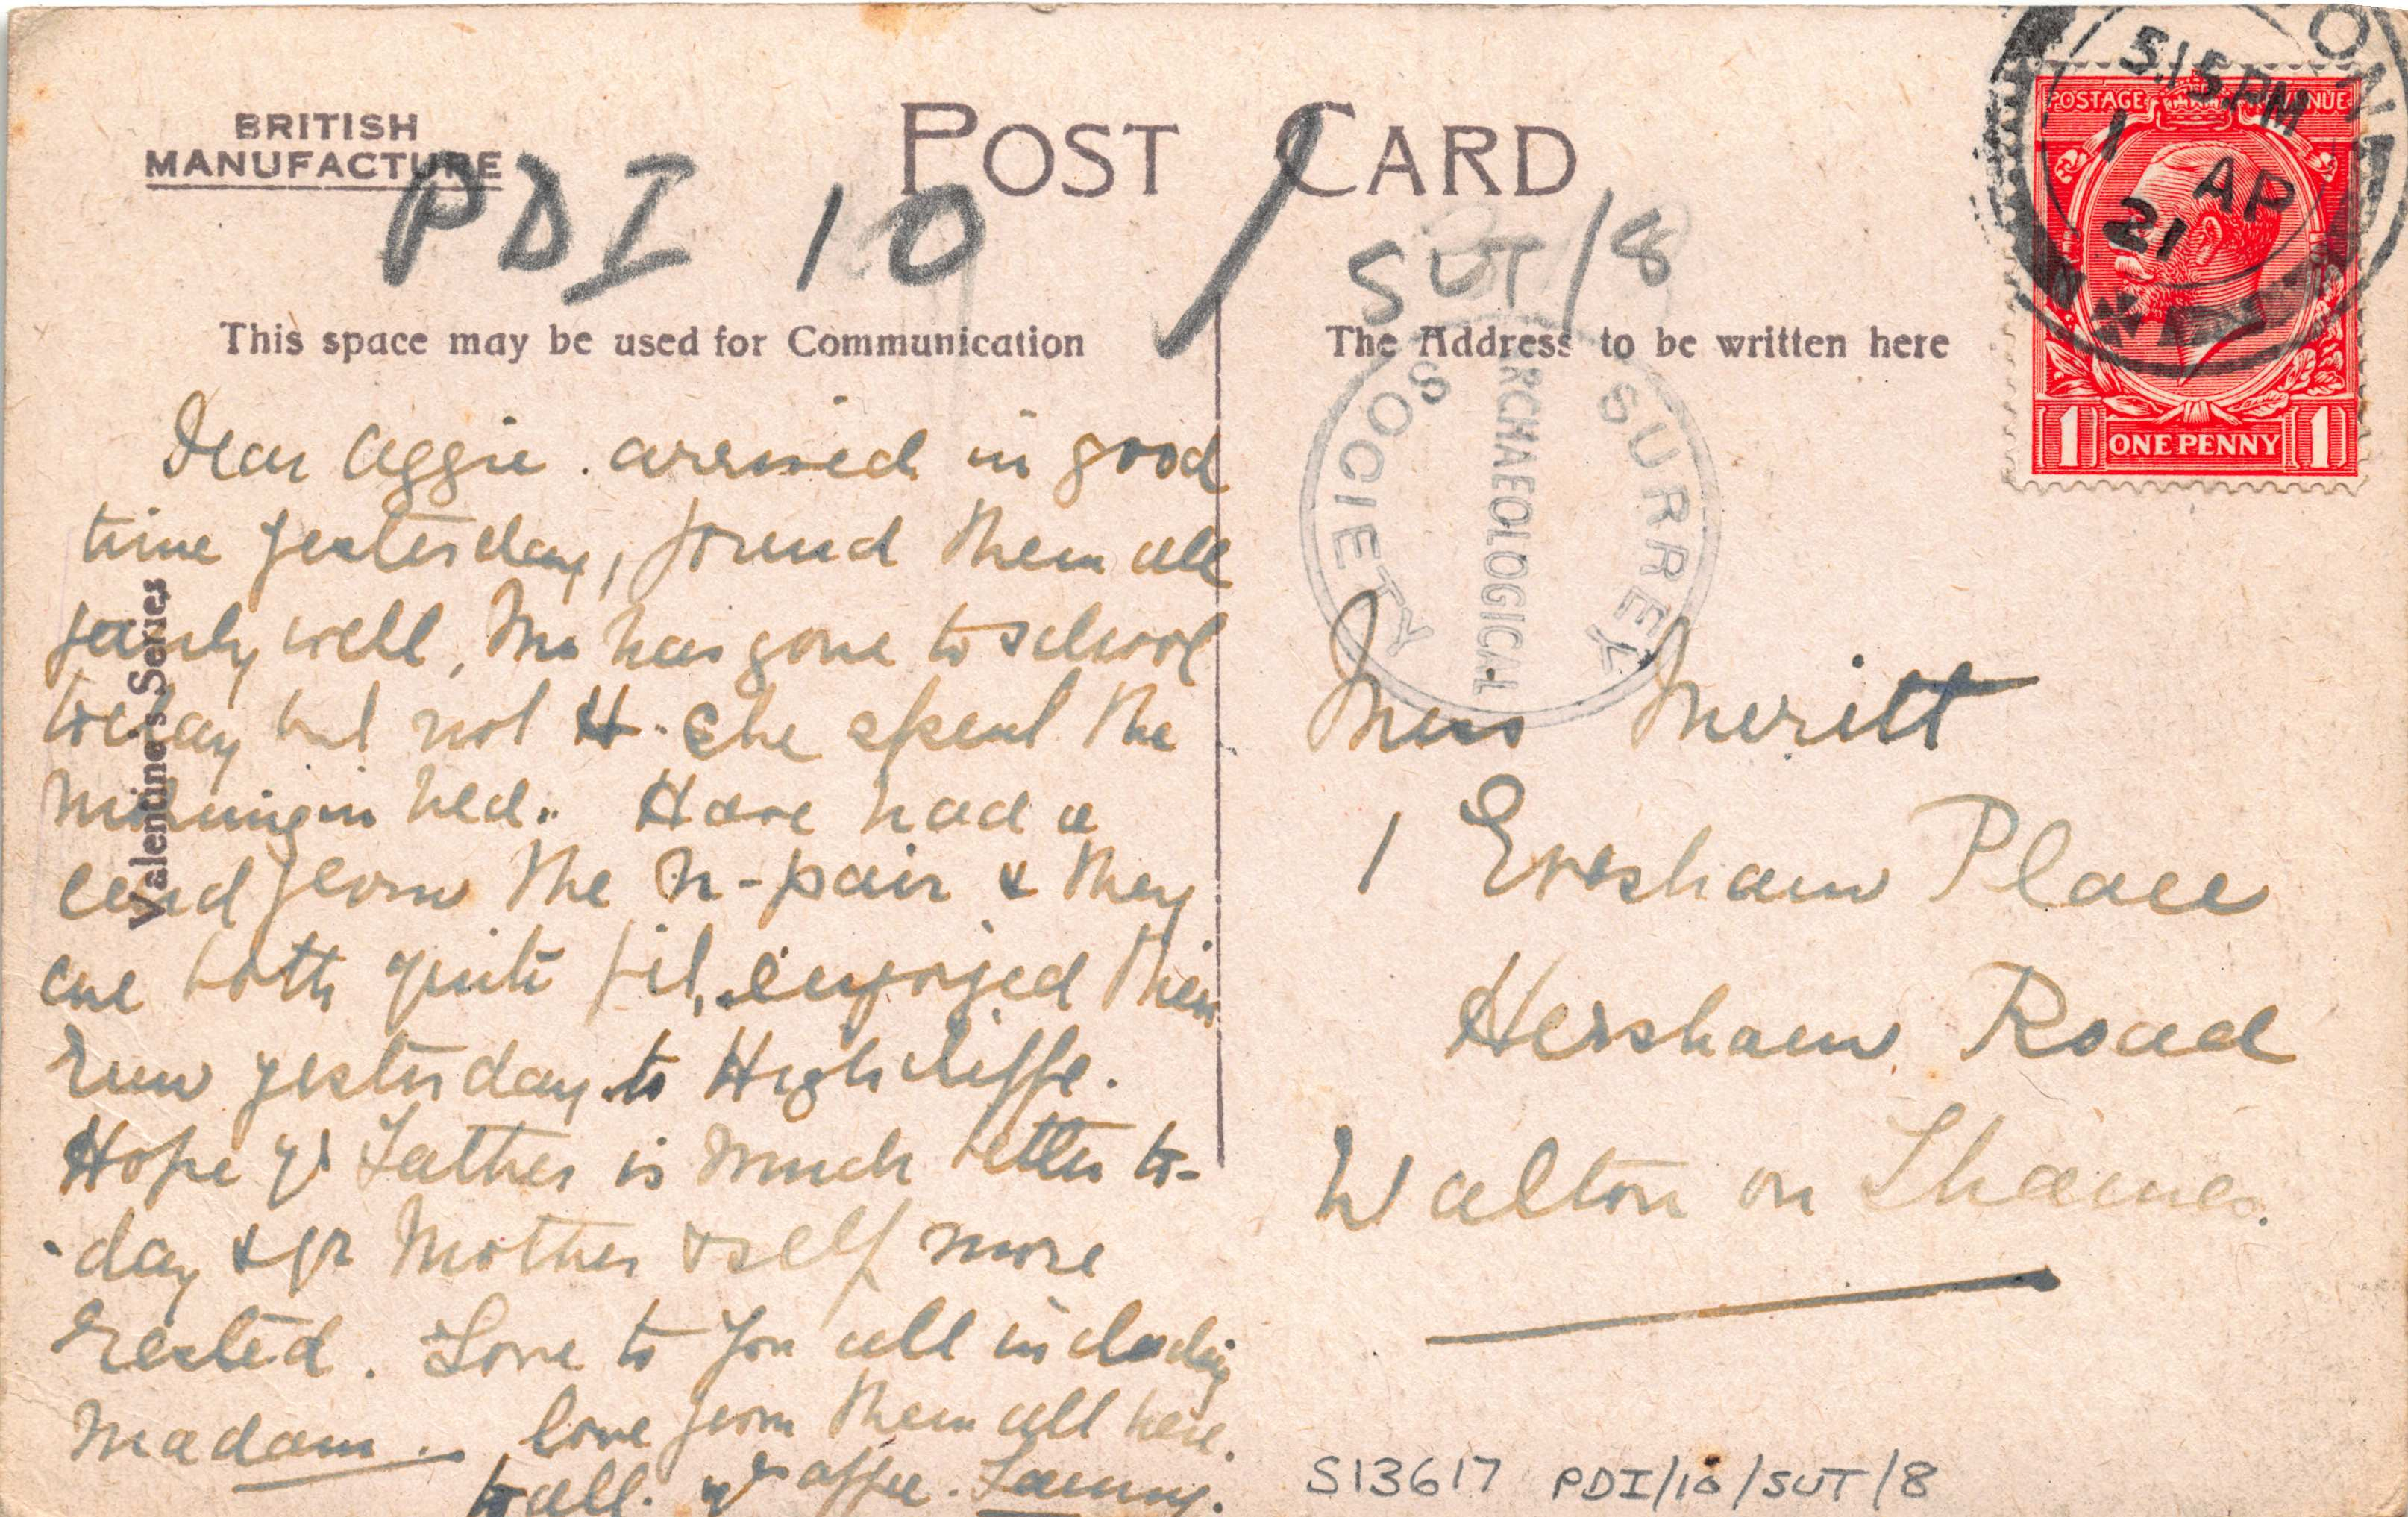 BRITISH
MANUFACTURE
POST CARD
PDI 10 /
SUT/8
This space may be used for Communication
The Address to be written here
Valentine's Series
POSTAGE REVENUE
1 ONE PENNY 1
5.15 PM
1 AP
21
SURREY
ARCHAEOLOGICAL
SOCIETY
Dear Aggie. arrived in good
time yesterday, found them all
fairly well, has gone to school
today but not H. She spent the
morning in bed. Have had a
card from the n-pair & they
are both quite fit, enjoyed their
run yesterday to Highcliffe.
Hope yr Father is much better to-
-day & yr Mother & self more
rested. Love to you all including
Madam. love from them all here.
to all. yrs affec. Fanny.
Miss Meritt
1 Evesham Place
Hersham Road
Walton on Thames.
S13617 PDI/10/SUT/8